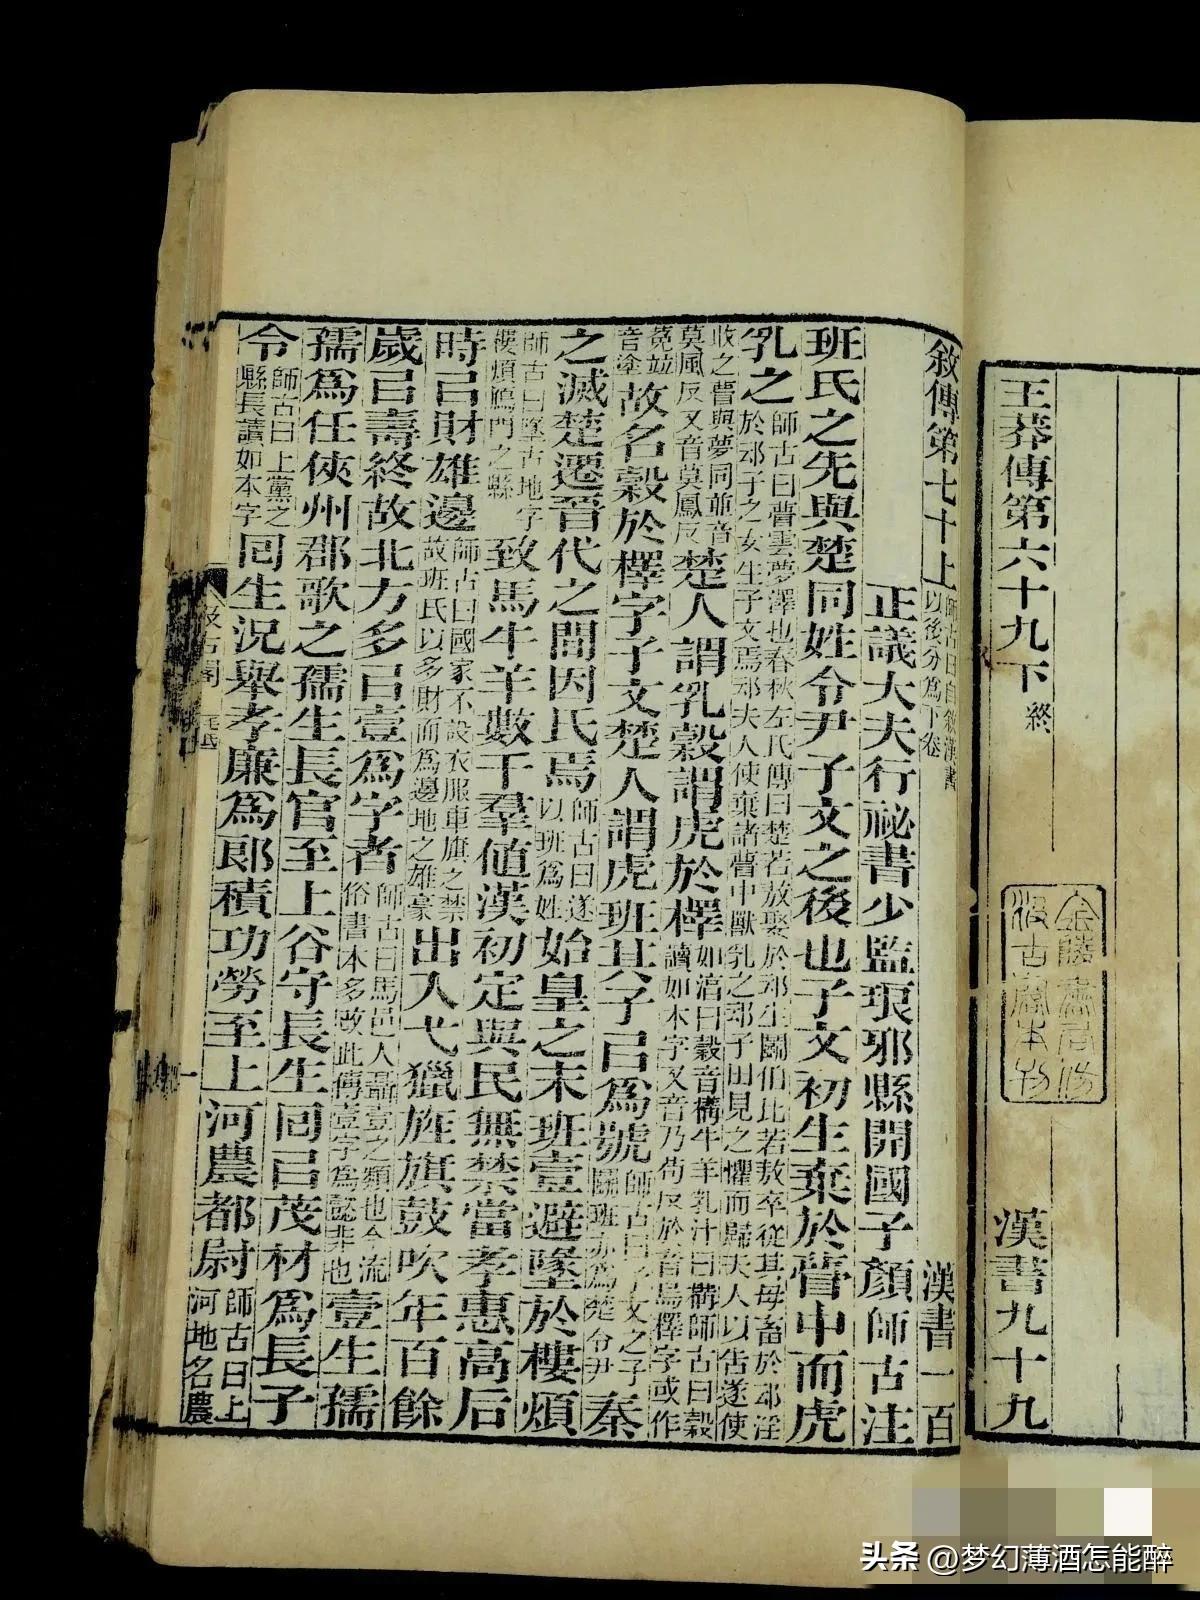 王莽傳第六十九下 終 漢書九十九
金陵書局仿
汲古閣本刊
敘傳第七十上 師古曰自敘漢書以後分爲下卷 漢書一百
正議大夫行祕書少監琅邪縣開國子顏師古注
班氏之先與楚同姓令尹子文之後也子文初生棄於瞢中而虎
乳之 師古曰瞢雲夢澤也春秋左氏傳曰楚若敖娶於䢵生鬭伯比若敖卒從其母畜於䢵淫於䢵子之女生子文焉䢵夫人使棄諸瞢中獸乳之䢵子田見之懼而歸夫人以告遂使
收之瞢與夢同並音莫風反又音莫鳳反 楚人謂乳穀謂虎於檡 如淳曰穀音構牛羊乳汁曰構師古曰穀讀如本字又音乃苟反於音烏檡字或作
菟竝音塗 故名穀於檡字子文楚人謂虎班其子㠯爲號 師古曰子文之子鬭班亦爲楚令尹 秦
之滅楚遷晉代之間因氏焉 師古曰遂以班爲姓 始皇之末班壹避墜於樓煩
師古曰墜古地字樓煩鴈門之縣 致馬牛羊數千羣値漢初定與民無禁當孝惠高后
時㠯財雄邊 師古曰國家不設衣服車旗之禁故班氏以多財而爲邊地之雄豪 出入弋獵旌旗鼓吹年百餘
歲㠯壽終故北方多㠯壹爲字者 師古曰馬邑人聶壹之類也今流俗書本多改此傳壹字爲懿非也 壹生孺
孺爲任俠州郡歌之孺生長官至上谷守長生回㠯茂材爲長子
令 師古曰上黨之縣長讀如本字 回生況舉孝廉爲郎積功勞至上河農都尉 師古曰上河地名農
汲古閣 毛氏 一
头条 @梦幻薄酒怎能醉